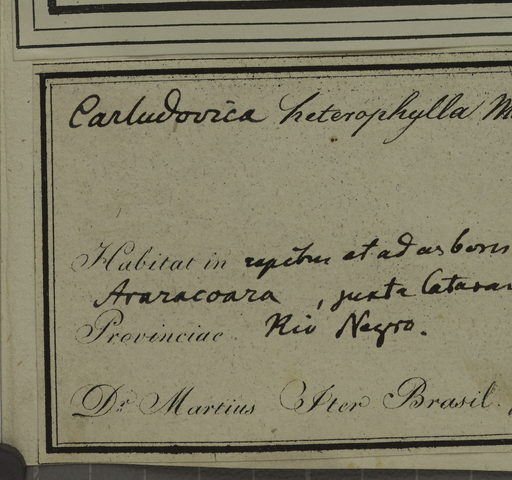 Carludovica heterophylla M
Habitat in rupibus et ad arbores
Araracoara, juxta Catarac
Provinciae Rio Negro.
Dr. Martius Iter Brasil.